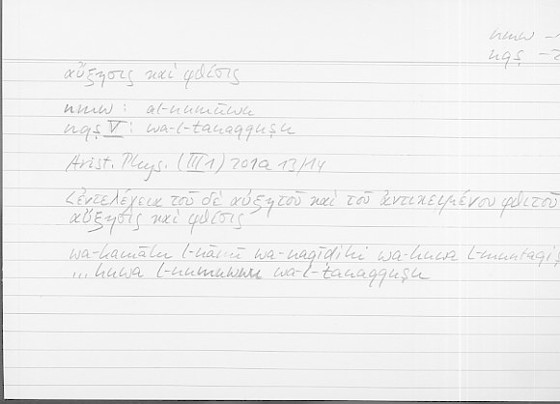 nmw –1
nqṣ –2
αὔξησις καὶ φθίσις
nmw : al-numūwu
nqṣ V : wa-l-tanaqquṣu
Arist. Phys. (III 1) 201a 13/14
ἐντελέχεια τοῦ δὲ αὐξητοῦ καὶ τοῦ ἀντικειμένου φθιτοῦ
αὔξησις καὶ φθίσις
wa-kamālu l-nāmī wa-naqīḍihī wa-huwa l-muntaqiṣ
... huwa l-numuwwu wa-l-tanaqquṣu